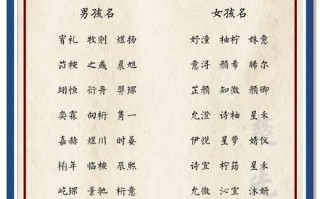 男孩名 女孩名
宥礼 牧则 煜扬 好潼 柚柠 姝意
苡桉 之彧 晨旭 意浔 颜希 晞尔
翊恒 衍舟 羿瑾 芷颜 知微 颜卿
奕霖 向桁 隽一 允澄 诗柚 星禾
嘉赫 煜川 时晏 伊悦 星梦 婧仪
柏年 临桉 辰熙 诗宜 柠药 星禾
屹璟 景驰 桁意 允微 沁宜 沐妍